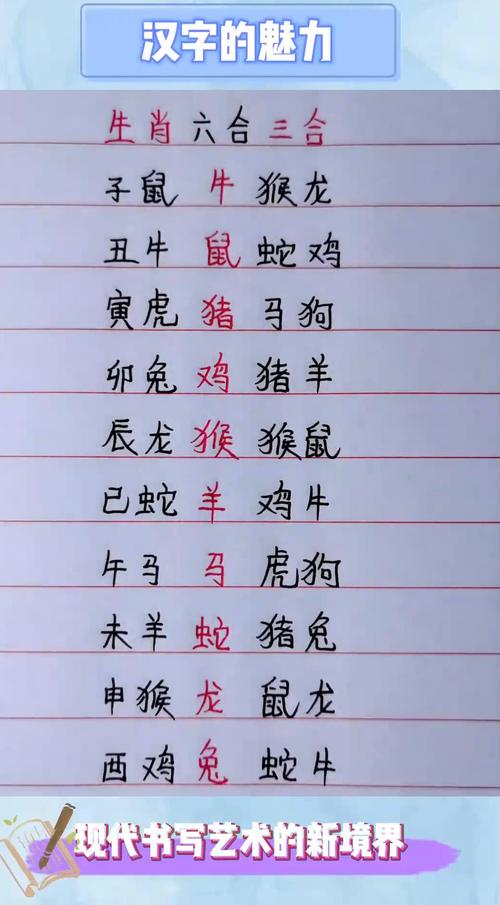 汉字的魅力
生肖 六合 三合
子鼠 牛 猴龙
丑牛 鼠 蛇鸡
寅虎 猪 马狗
卯兔 鸡 猪羊
辰龙 猴 猴鼠
已蛇 羊 鸡牛
午马 马 虎狗
未羊 蛇 猪兔
申猴 龙 鼠龙
西鸡 兔 蛇牛
现代书写艺术的新境界